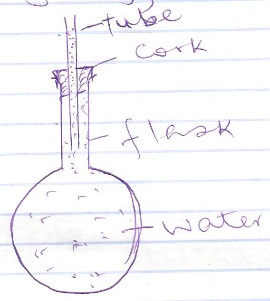 tube
cork
flask
water